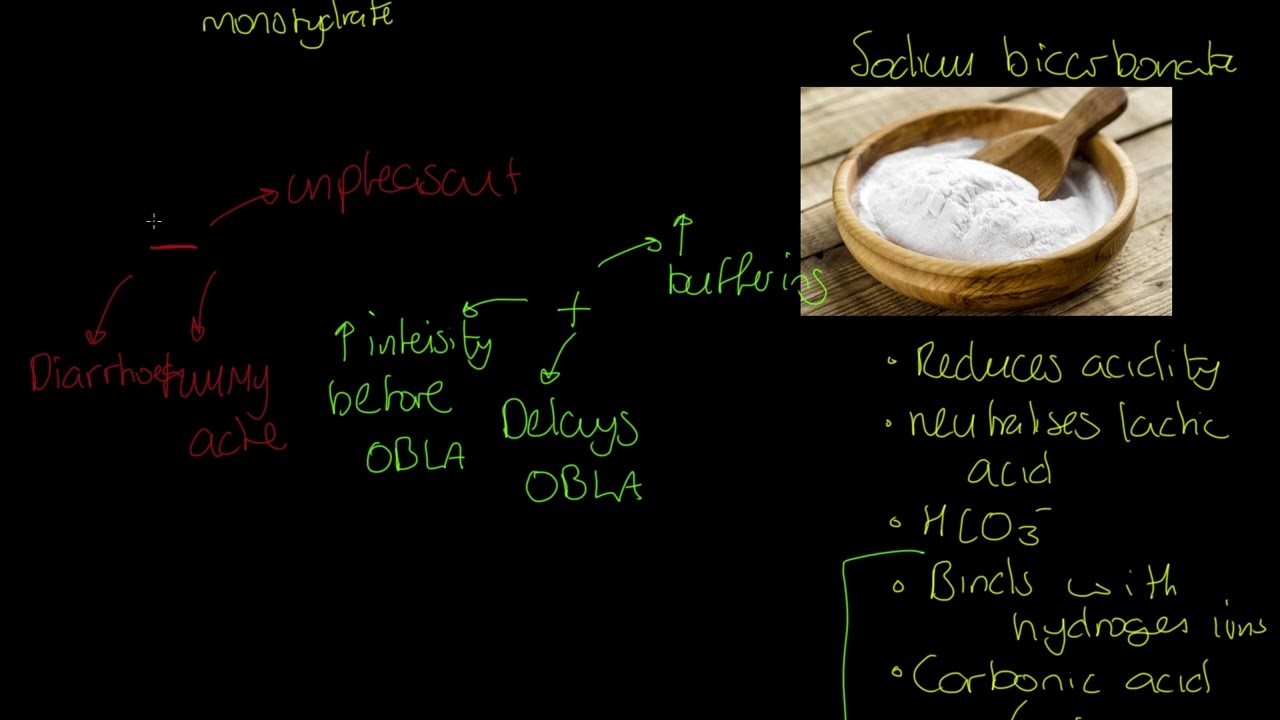 monohydrate
Sodium bicarbonate
unpleasant
—
Diarrhoea
tummy
ache
+
↑
buffering
↑ intensity
before
OBLA
Delays
OBLA
• Reduces acidity
• neutralises lactic
acid
• HCO3-
• Binds with
hydrogen ions
• Carbonic acid